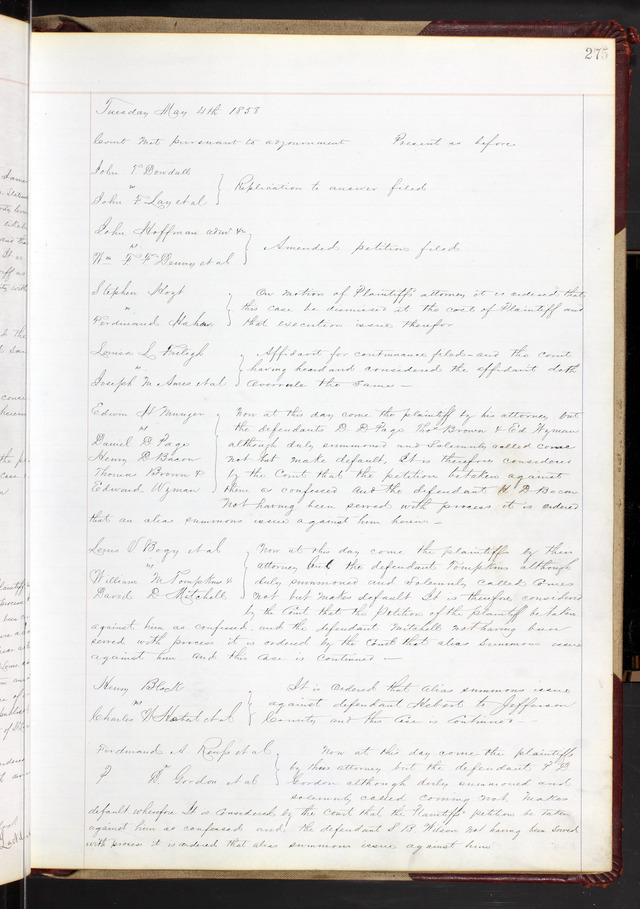 275
Tuesday May 4th 1858
Court met pursuant to adjournment Present as before
John T Dowdall
vs
John F Lay et al
Replication to answer filed
John Hoffman admr &
vs
Wm F F Denny et al
Amended petition filed
Stephen Hoyt
vs
Ferdinand
On motion of Plaintiffs attorney it is ordered that
this case be dismissed at the cost of Plaintiff and
that execution issue therefor
Louisa L
vs
Joseph M Ames et al
Affidavit for continuance filed and the court
having heard and considered the affidavit doth
overrule the same —
Edwin H Munger
vs
Daniel D Page
Henry D Bacon
Thomas Brown &
Edward Wyman
Now at this day come the plaintiff by his attorney but
the defendants D D Page Thos Brown & Ed Wyman
although duly summoned and solemnly called come
not but make default, It is therefore considered
by the Court that the petition be taken against
them as confessed and the defendant H D Bacon
Not having been served with process it is ordered
that an alias summons issue against him herein —
Louis V Bogy et al
vs
William M Tompkins &
David D Mitchell
Now at this day come the plaintiffs by their
attorney but the defendant Tompkins although
duly summoned and solemnly called comes
not but makes default It is therefore considered
by the Court that the Petition of the plaintiff be taken
against him as confessed and the defendant Mitchell not having been
served with process it is ordered by the Court that alias summons issue
against him and this case is continued —
Henry Block
vs
Charles W Hebert et al
It is ordered that alias summons issue
against defendant Hebert to Jefferson
County and the case is continued —
Ferdinand A et al
P D Gordon et al
Now at this day come the plaintiffs
by their attorney but the defendant P D
Gordon although duly summoned and
solemnly called coming not makes
default wherefore It is considered by the Court that the Plaintiffs petition be taken
against him as confessed and the defendant S B Wilson not having been served
with process it is ordered that alias summons issue against him